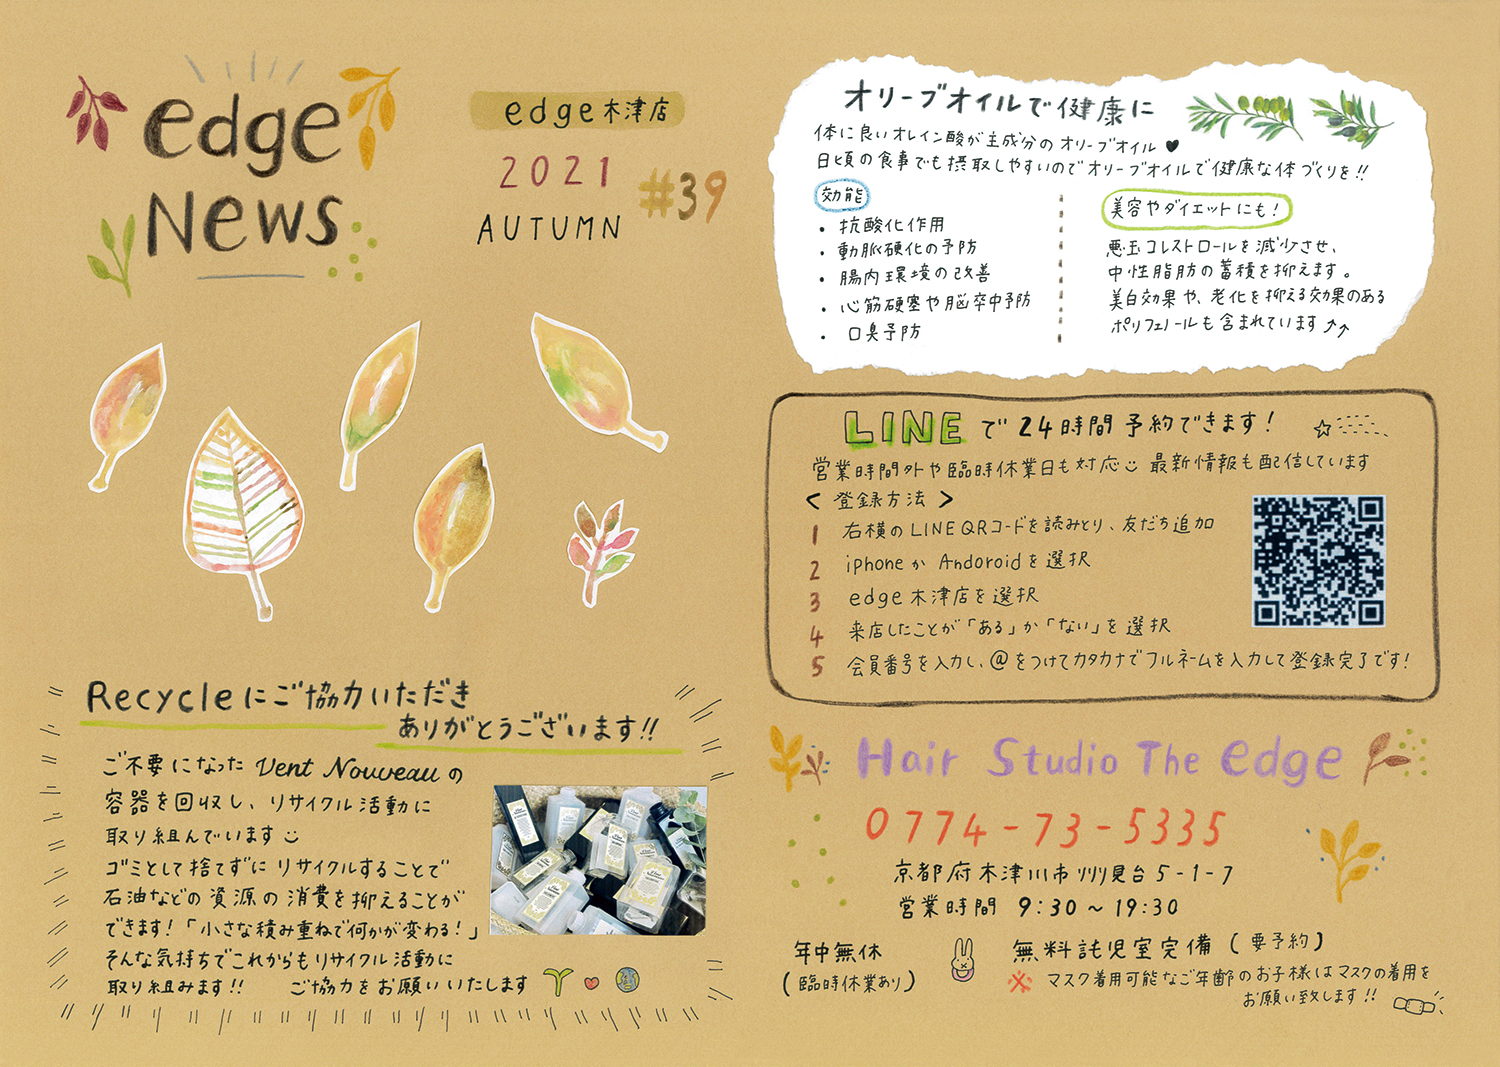 edge
News
edge木津店
2021
#39
AUTUMN
Recycleにご協力いただき
ありがとうございます!!
ご不要になったVent Nouveauの
容器を回収し、リサイクル活動に
取り組んでいます
ゴミとして捨てずにリサイクルすることで
石油などの資源の消費を抑えることが
できます!「小さな積み重ねで何かが変わる!」
そんな気持ちでこれからもリサイクル活動に
取り組みます!! ご協力をお願いいたします
オリーブオイルで健康に
体に良いオレイン酸が主成分のオリーブオイル♥
日頃の食事でも摂取しやすいのでオリーブオイルで健康な体づくりを!!
効能
・抗酸化作用
・動脈硬化の予防
・腸内環境の改善
・心筋硬塞や脳卒中予防
・口臭予防
美容やダイエットにも!
悪玉コレストロールを減少させ、
中性脂肪の蓄積を抑えます。
美白効果や、老化を抑える効果のある
ポリフェノールも含まれています↑↑
LINEで24時間予約できます!
営業時間外や臨時休業日も対応 最新情報も配信しています
<登録方法>
1 右横のLINE QRコードを読みとり、友だち追加
2 iphoneかAndoroidを選択
3 edge木津店を選択
4 来店したことが「ある」か「ない」を選択
5 会員番号を入力し、@をつけてカタカナでフルネームを入力して登録完了です!
Hair Studio The edge
0774-73-5335
京都府木津川市州見台5-1-7
営業時間 9:30~19:30
年中無休
(臨時休業あり)
無料託児室完備(要予約)
※マスク着用可能なご年齢のお子様はマスクの着用を
お願い致します!!